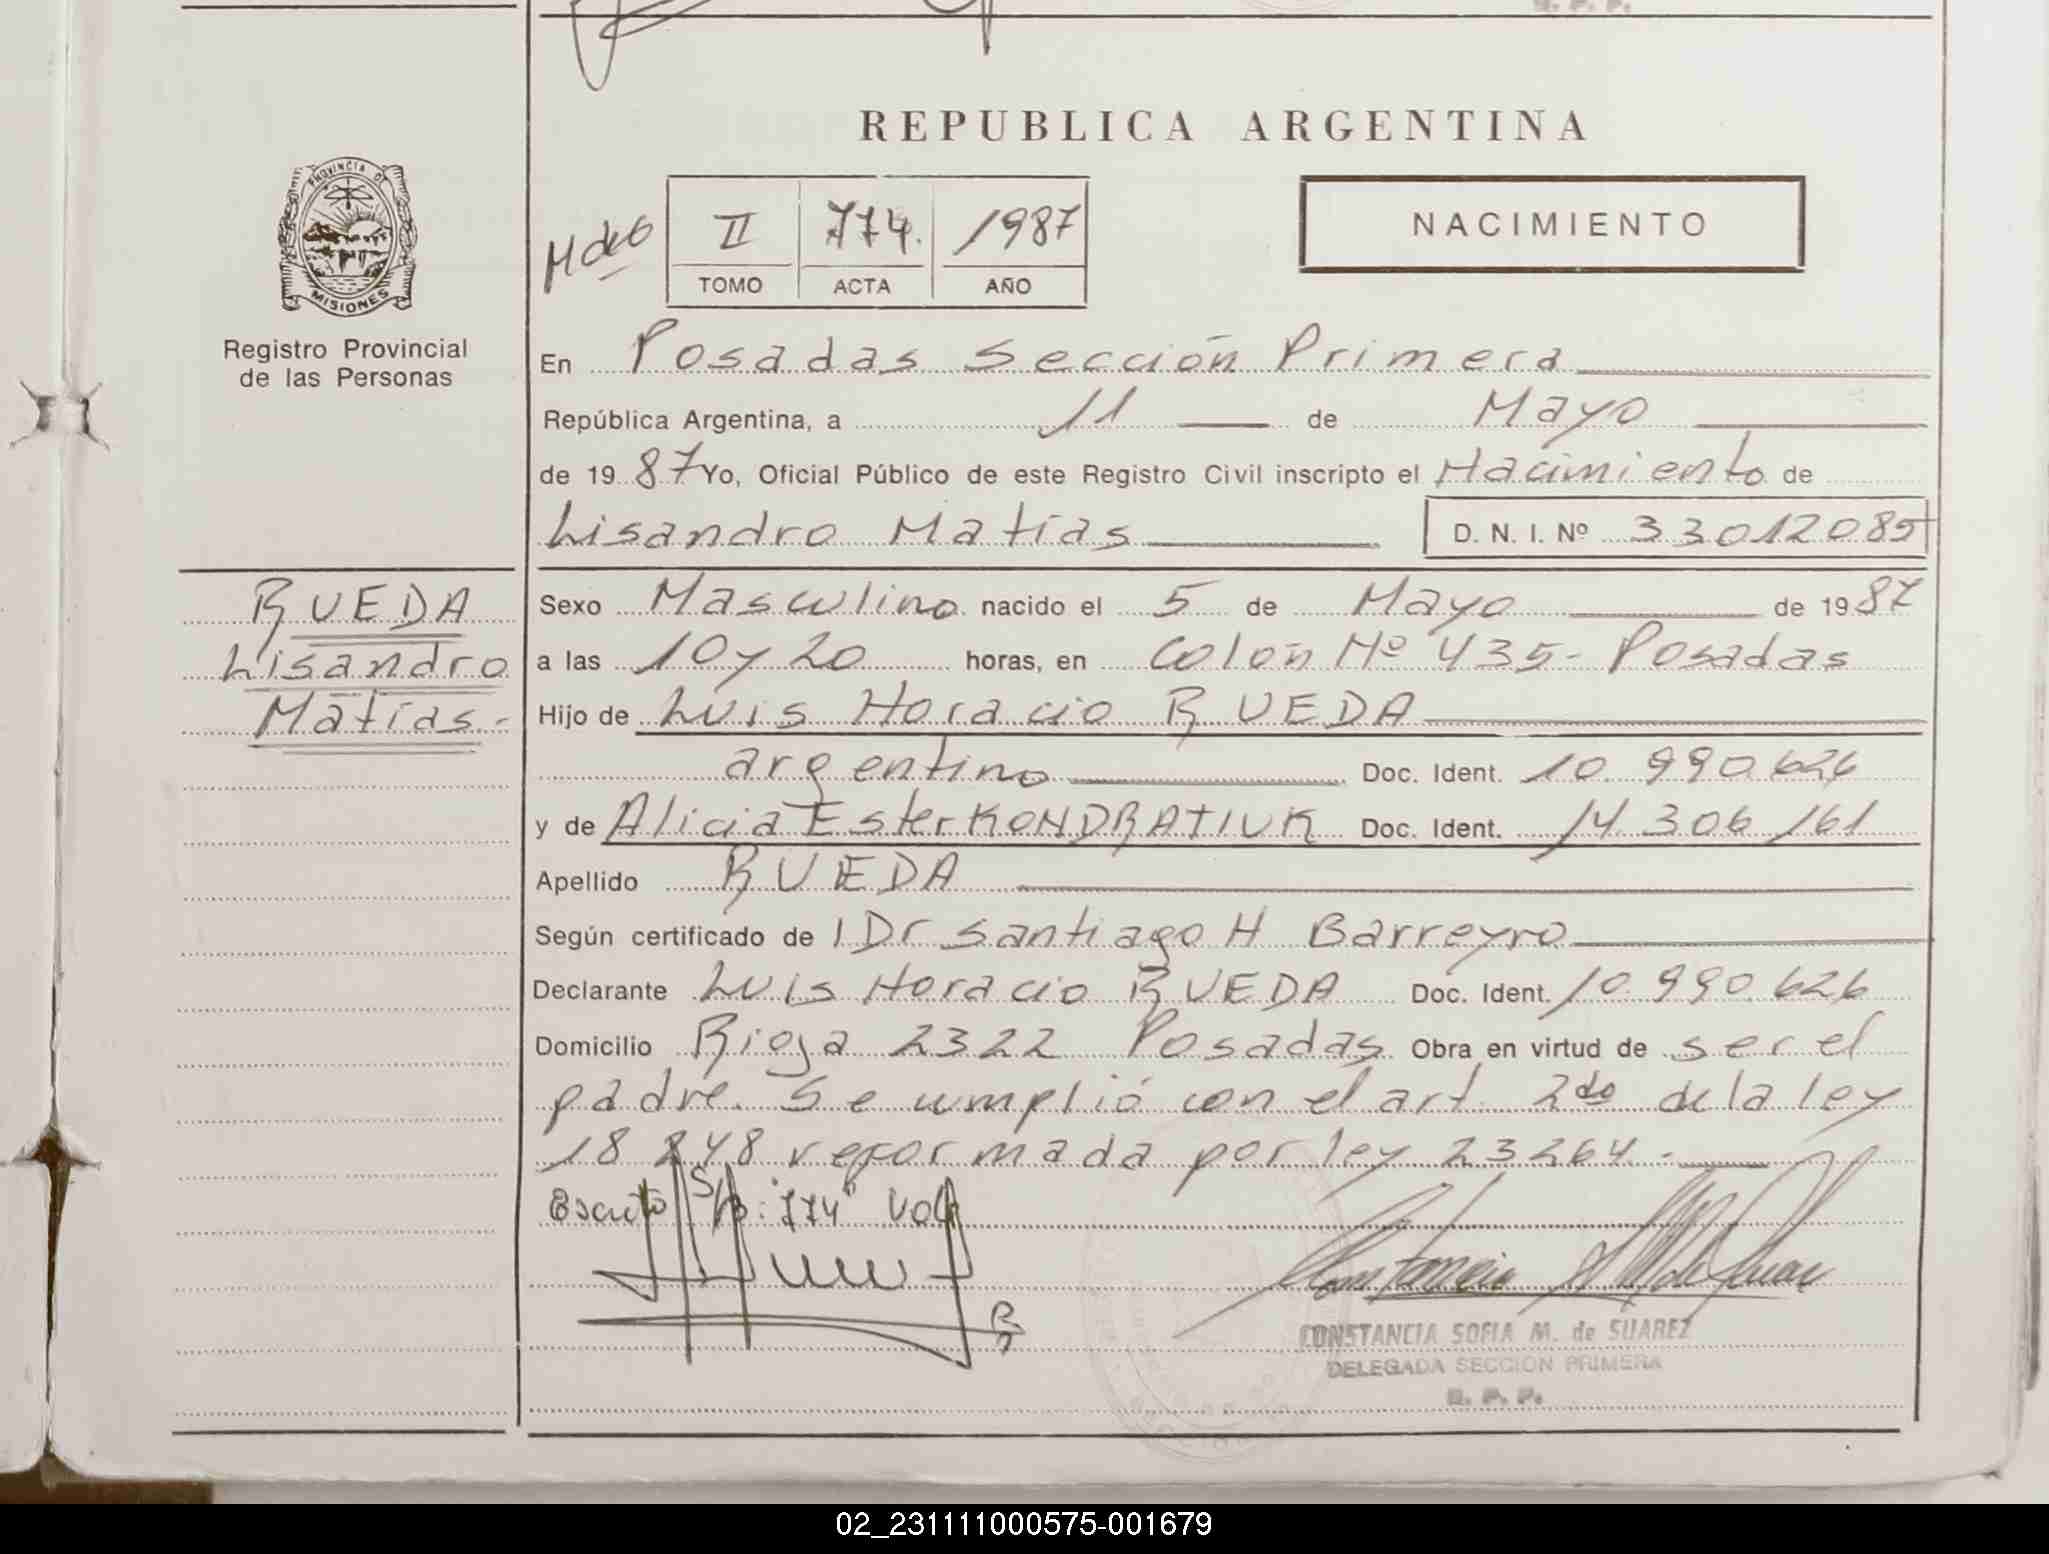 REPUBLICA ARGENTINA
PROVINCIA DE
MISIONES
Registro Provincial
de las Personas
II 774. 1987
TOMO ACTA AÑO
NACIMIENTO
En Posadas Sección Primera
República Argentina, a 11 de Mayo
de 19 87 Yo, Oficial Público de este Registro Civil inscripto el Nacimiento de
Lisandro Matías D. N. I. Nº 33012085
RUEDA
Lisandro
Matías.-
Sexo Masculino nacido el 5 de Mayo de 19 87
a las 10 y 20 horas, en Colón Nº 435- Posadas
Hijo de Luis Horacio RUEDA
argentino Doc. Ident. 10.990.626
y de Alicia Ester KONDRATIUK Doc. Ident. 14.306.161
Apellido RUEDA
Según certificado de l Dr Santiago H Barreyro
Declarante Luis Horacio RUEDA Doc. Ident. 10.990.626
Domicilio Rioja 2322 Posadas Obra en virtud de ser el
padre. Se cumplió con el art. 2do de la ley
18248 reformada por ley 23264.-
Escrito S/b: "774" Vale
CONSTANCIA SOFIA M. de SUAREZ
DELEGADA SECCION PRIMERA
R. P. P.
02_231111000575-001679